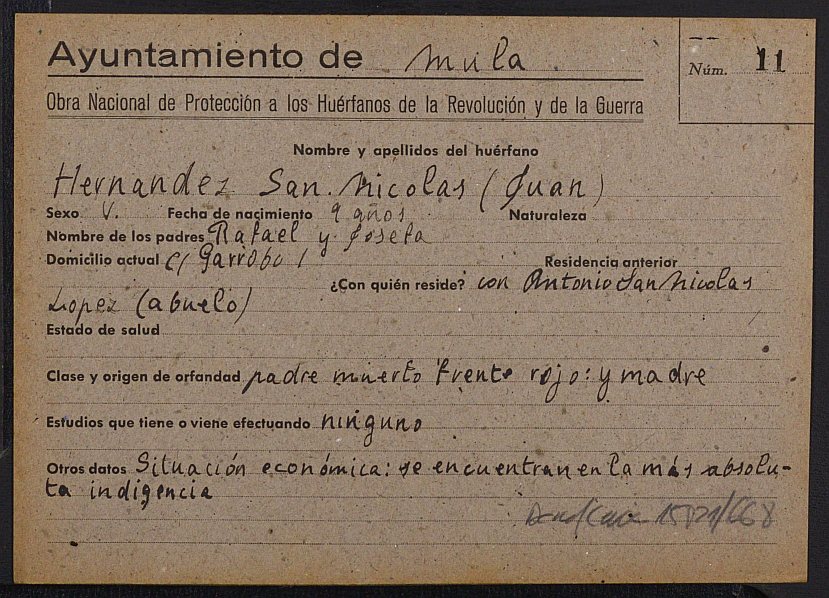 Ayuntamiento de Mula
Núm. 11
Obra Nacional de Protección a los Huérfanos de la Revolución y de la Guerra
Nombre y apellidos del huérfano
Hernandez San Nicolas (Juan)
Sexo V. Fecha de nacimiento 9 años Naturaleza
Nombre de los padres Rafael y Josefa
Domicilio actual C/ Garrobo 1 Residencia anterior
¿Con quién reside? con Antonio San Nicolas
Lopez (abuelo)
Estado de salud
Clase y origen de orfandad padre muerto frente rojo: y madre
Estudios que tiene o viene efectuando ninguno
Otros datos Situación económica: se encuentran en la más absolu-
ta indigencia